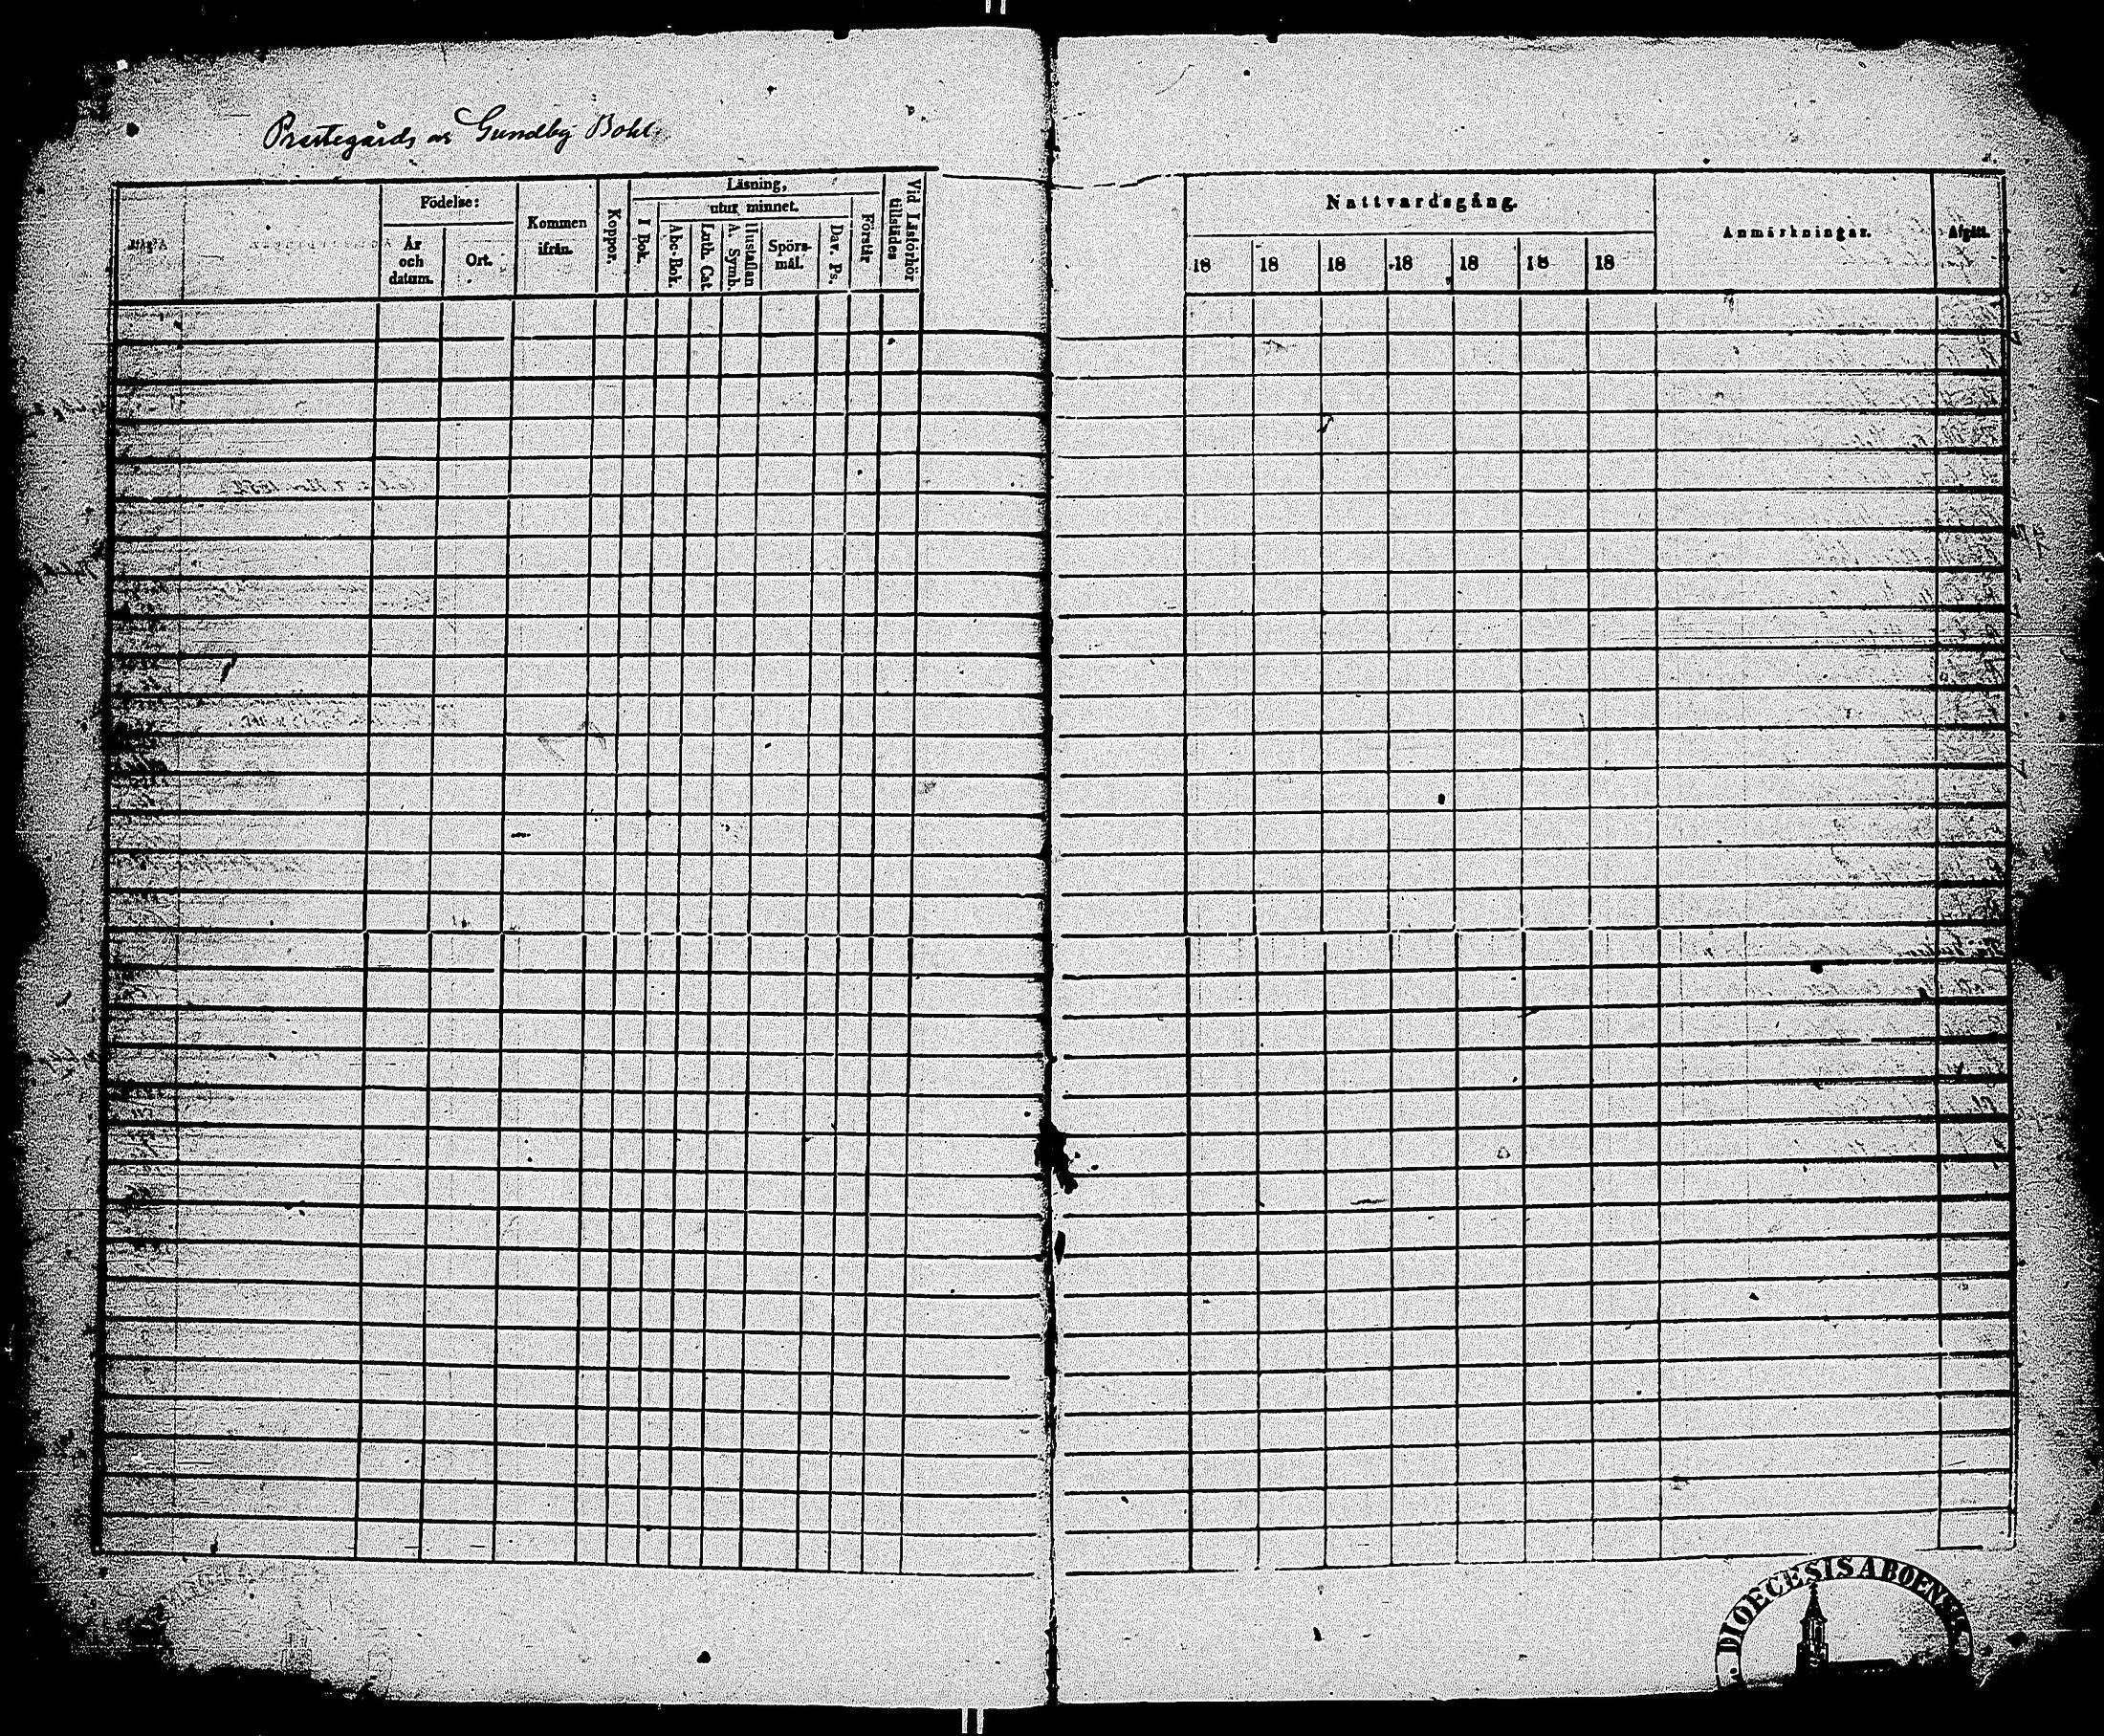 Prestegårds os Gundby Bohl
Födelse:
År
och
datum.
Ort.
Kommen
ifrån.
Koppor.
Läsning,
I Bok.
utur minnet.
Abc-Bok.
Luth. Cat.
Hustaflan
A. Symb.
Spörs-
mål.
Dav. Ps.
Förstår
Vid Läsförhör
tillstädes
Nattvardsgång.
18 18 18 18 18 18 18
Anmärkningar.
Afgått.
DIOECESIS ABOENSIS